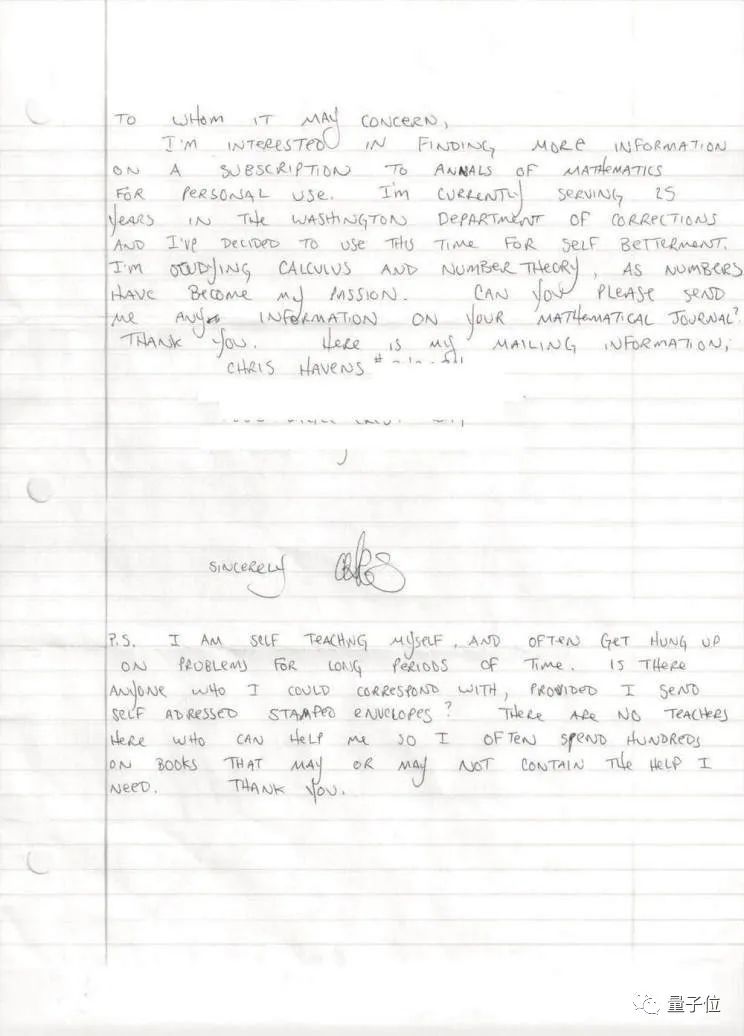 TO WHOM IT MAY CONCERN,
I'M INTERESTED IN FINDING MORE INFORMATION
ON A SUBSCRIPTION TO ANNALS OF MATHEMATICS
FOR PERSONAL USE. I'M CURRENTLY SERVING 25
YEARS IN THE WASHINGTON DEPARTMENT OF CORRECTIONS
AND I'VE DECIDED TO USE THIS TIME FOR SELF BETTERMENT.
I'M STUDYING CALCULUS AND NUMBER THEORY, AS NUMBERS
HAVE BECOME MY PASSION. CAN YOU PLEASE SEND
ME ANY INFORMATION ON YOUR MATHEMATICAL JOURNAL?
THANK YOU. HERE IS MY MAILING INFORMATION;
CHRIS HAVENS #
SINCERELY
P.S. I AM SELF TEACHNG MYSELF, AND OFTEN GET HUNG UP
ON PROBLEMS FOR LONG PERIODS OF TIME. IS THERE
ANYONE WHO I COULD CORRESPOND WITH, PROVIDED I SEND
SELF ADRESSED STAMPED ENVELOPES? THERE ARE NO TEACHERS
HERE WHO CAN HELP ME SO I OFTEN SPEND HUNDREDS
ON BOOKS THAT MAY OR MAY NOT CONTAIN THE HELP I
NEED. THANK YOU.
量子位